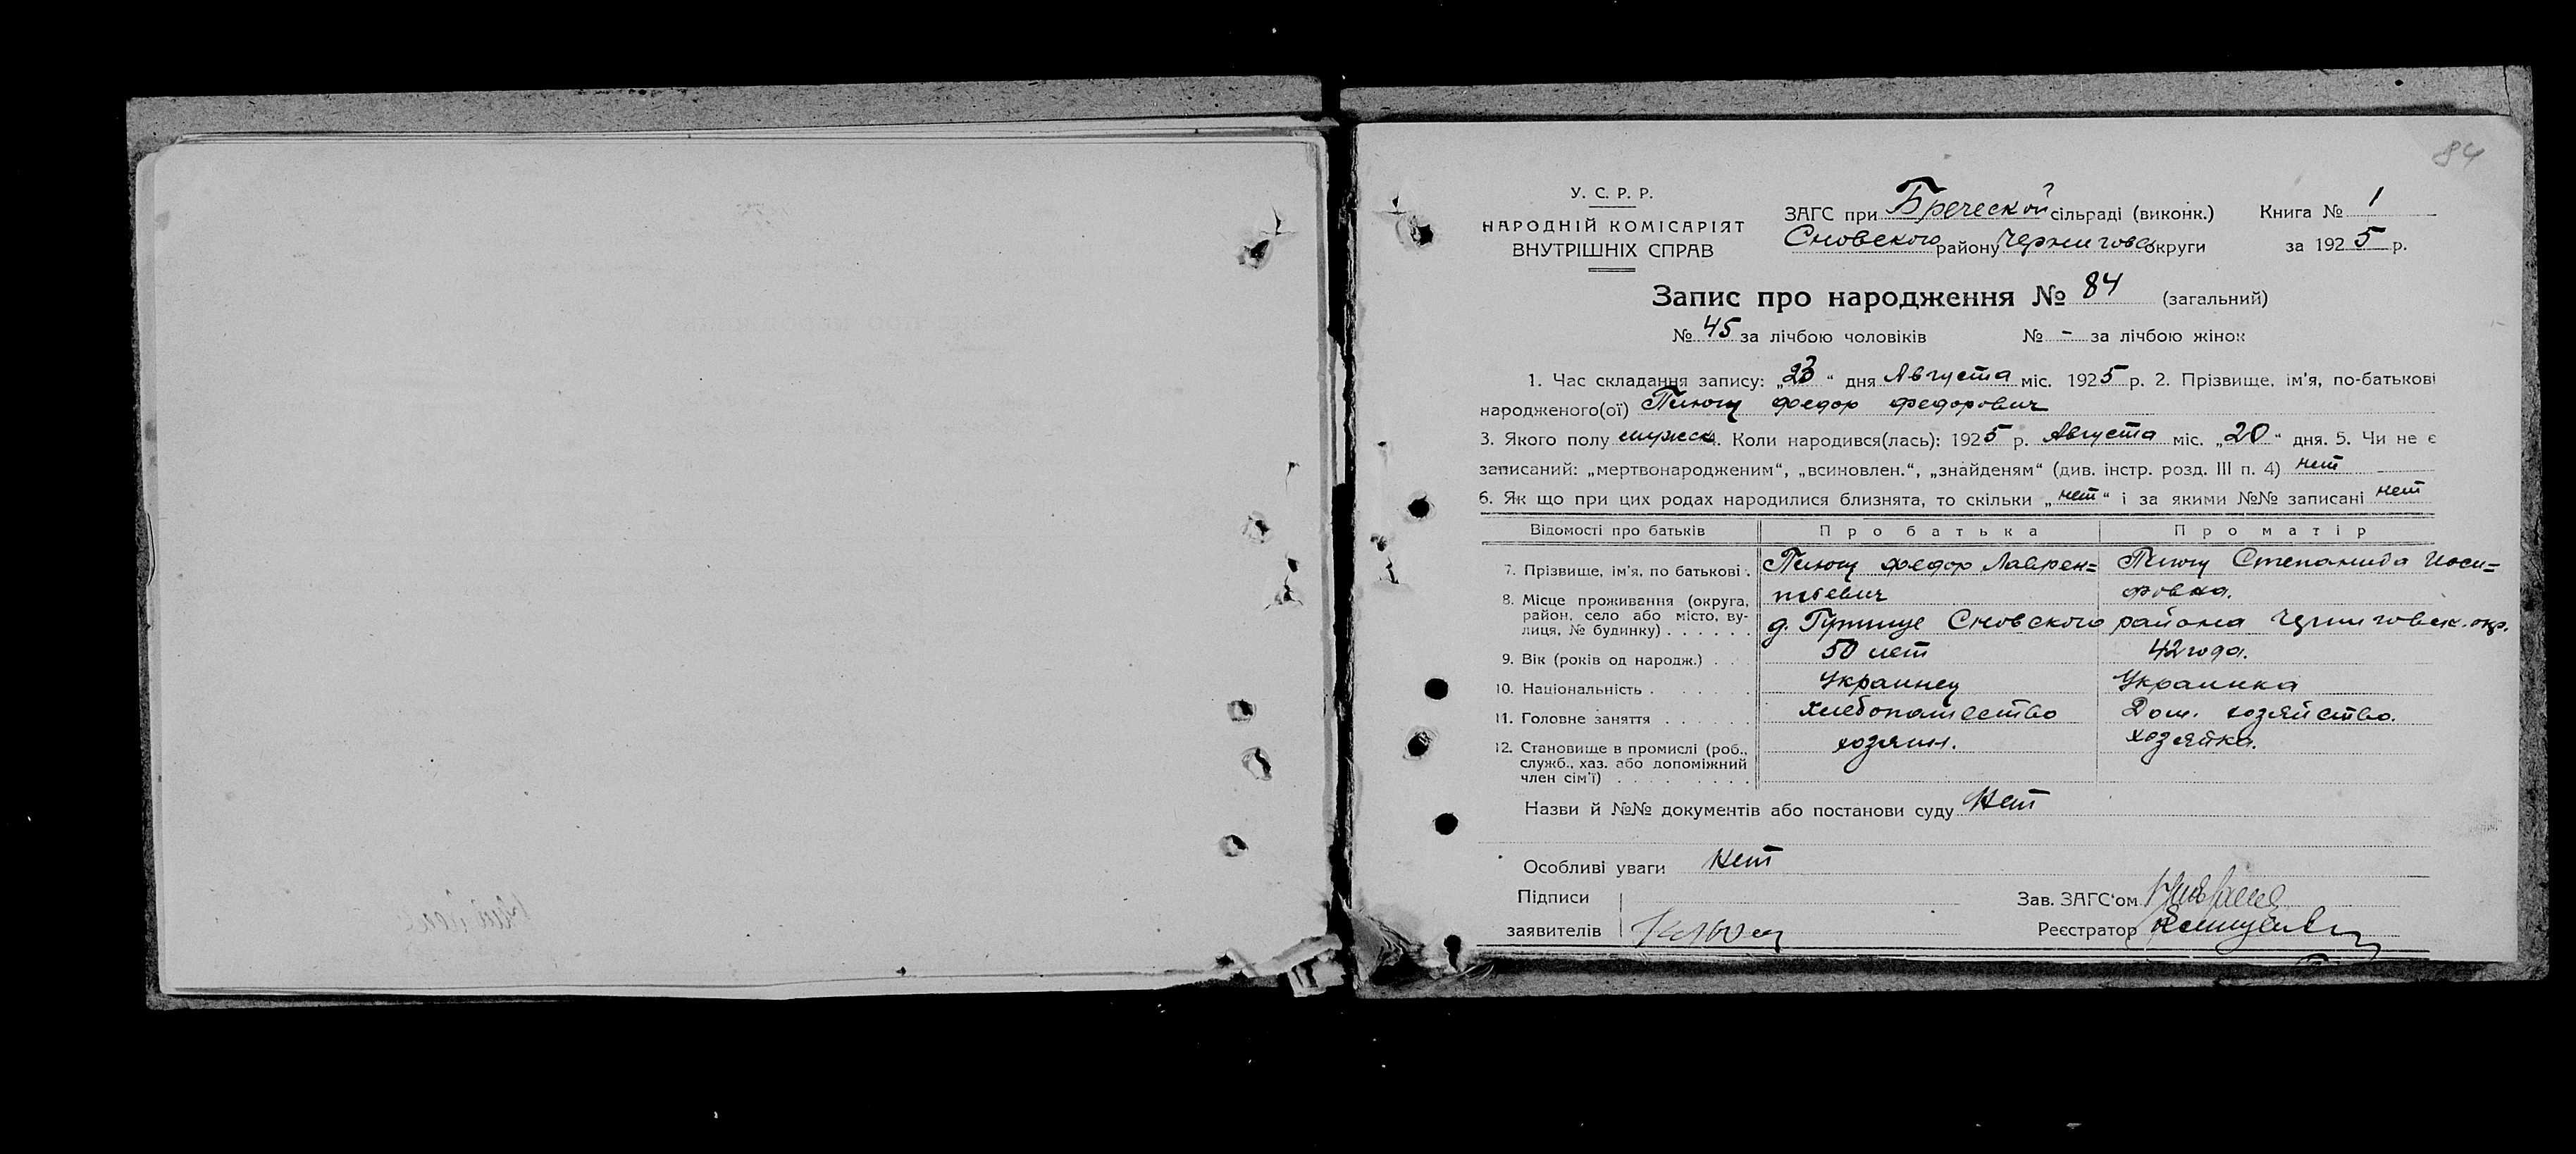 84
У. С. Р. Р.
НАРОДНІЙ КОМІСАРІЯТ
ВНУТРІШНІХ СПРАВ
ЗАГС при Бреческой сільраді (виконк.) Книга № 1
Сновского району Чернигово округи за 1925 р.
Запис про народження № 84 (загальний)
№ 45 за лічбою чоловіків № - за лічбою жінок
1. Час складання запису: „23“ дня Августа міс. 1925 р. 2. Прізвище, ім'я, по-батькові
народженого(ої) Федор Федорович
3. Якого полу мужск 4. Коли народився(лась): 1925 р. Августа міс. „20“ дня. 5. Чи не є
записаний: „мертвонародженим“, „всиновлен.“, „знайденям“ (див. інстр. розд. III п. 4) нет
6. Як що при цих родах народилися близнята, то скільки „нет“ і за якими №№ записані нет
Відомості про батьків Про батька Про матір
7. Прізвище, ім'я, по батькові. Федор Лаврен= Степанида Иоси=
тьевич фовна.
8. Місце проживання (округа, район, село або місто, ву-
лиця, № будинку) . . . . . . д. Сновского района Черниговск. окр.
9. Вік (років од народж.) . . 50 лет 42 года.
10. Національність . . . . . Украинец Украинка
11. Головне заняття . . . . . . Хлебопашество Дом. хозяйство.
12. Становище в промислі (роб., хозяин. хозяйка.
служб., хаз. або допоміжний
член сім'ї) . . . . . . . .
Назви й №№ документів або постанови суду Нет
Особливі уваги Нет
Підписи Зав. ЗАГС'ом
заявителів Реєстратор